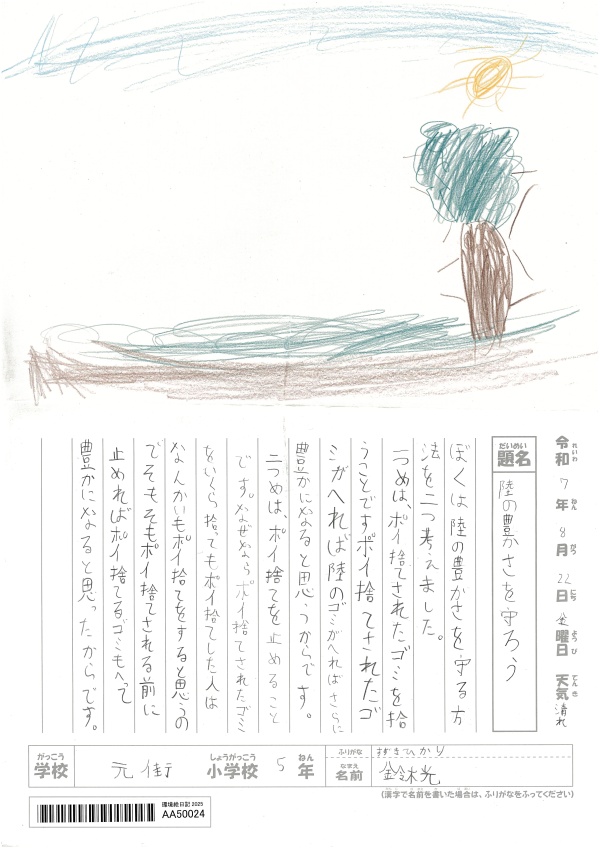 令和7年8月22日金曜日 天気 晴れ
れいわ ねん がつ にち ようび てんき
だいめい
題名 陸の豊かさを守ろう
ぼくは陸の豊かさを守る方
法を二つ考えました。
一つめは、ポイ捨てされたゴミを拾
うことですポイ捨てされたゴ
ミがへれば陸のゴミがへればさらに
豊かになると思うからです。
二つめは、ポイ捨てを止めること
です。なぜなら ポイ捨てされたゴミ
をいくら拾ってもポイ捨てした人は
なんかいもポイ捨てをすると思うの
でそもそもポイ捨てされる前に
止めればポイ捨てるゴミもへって
豊かになると思ったからです。
がっこう しょうがっこう ねん
学校 元街 小学校 5年
ふりがな すずきひかり
なまえ
名前 鈴木光
(漢字で名前を書いた場合は、ふりがなをふってください)
環境絵日記 2025
AA50024